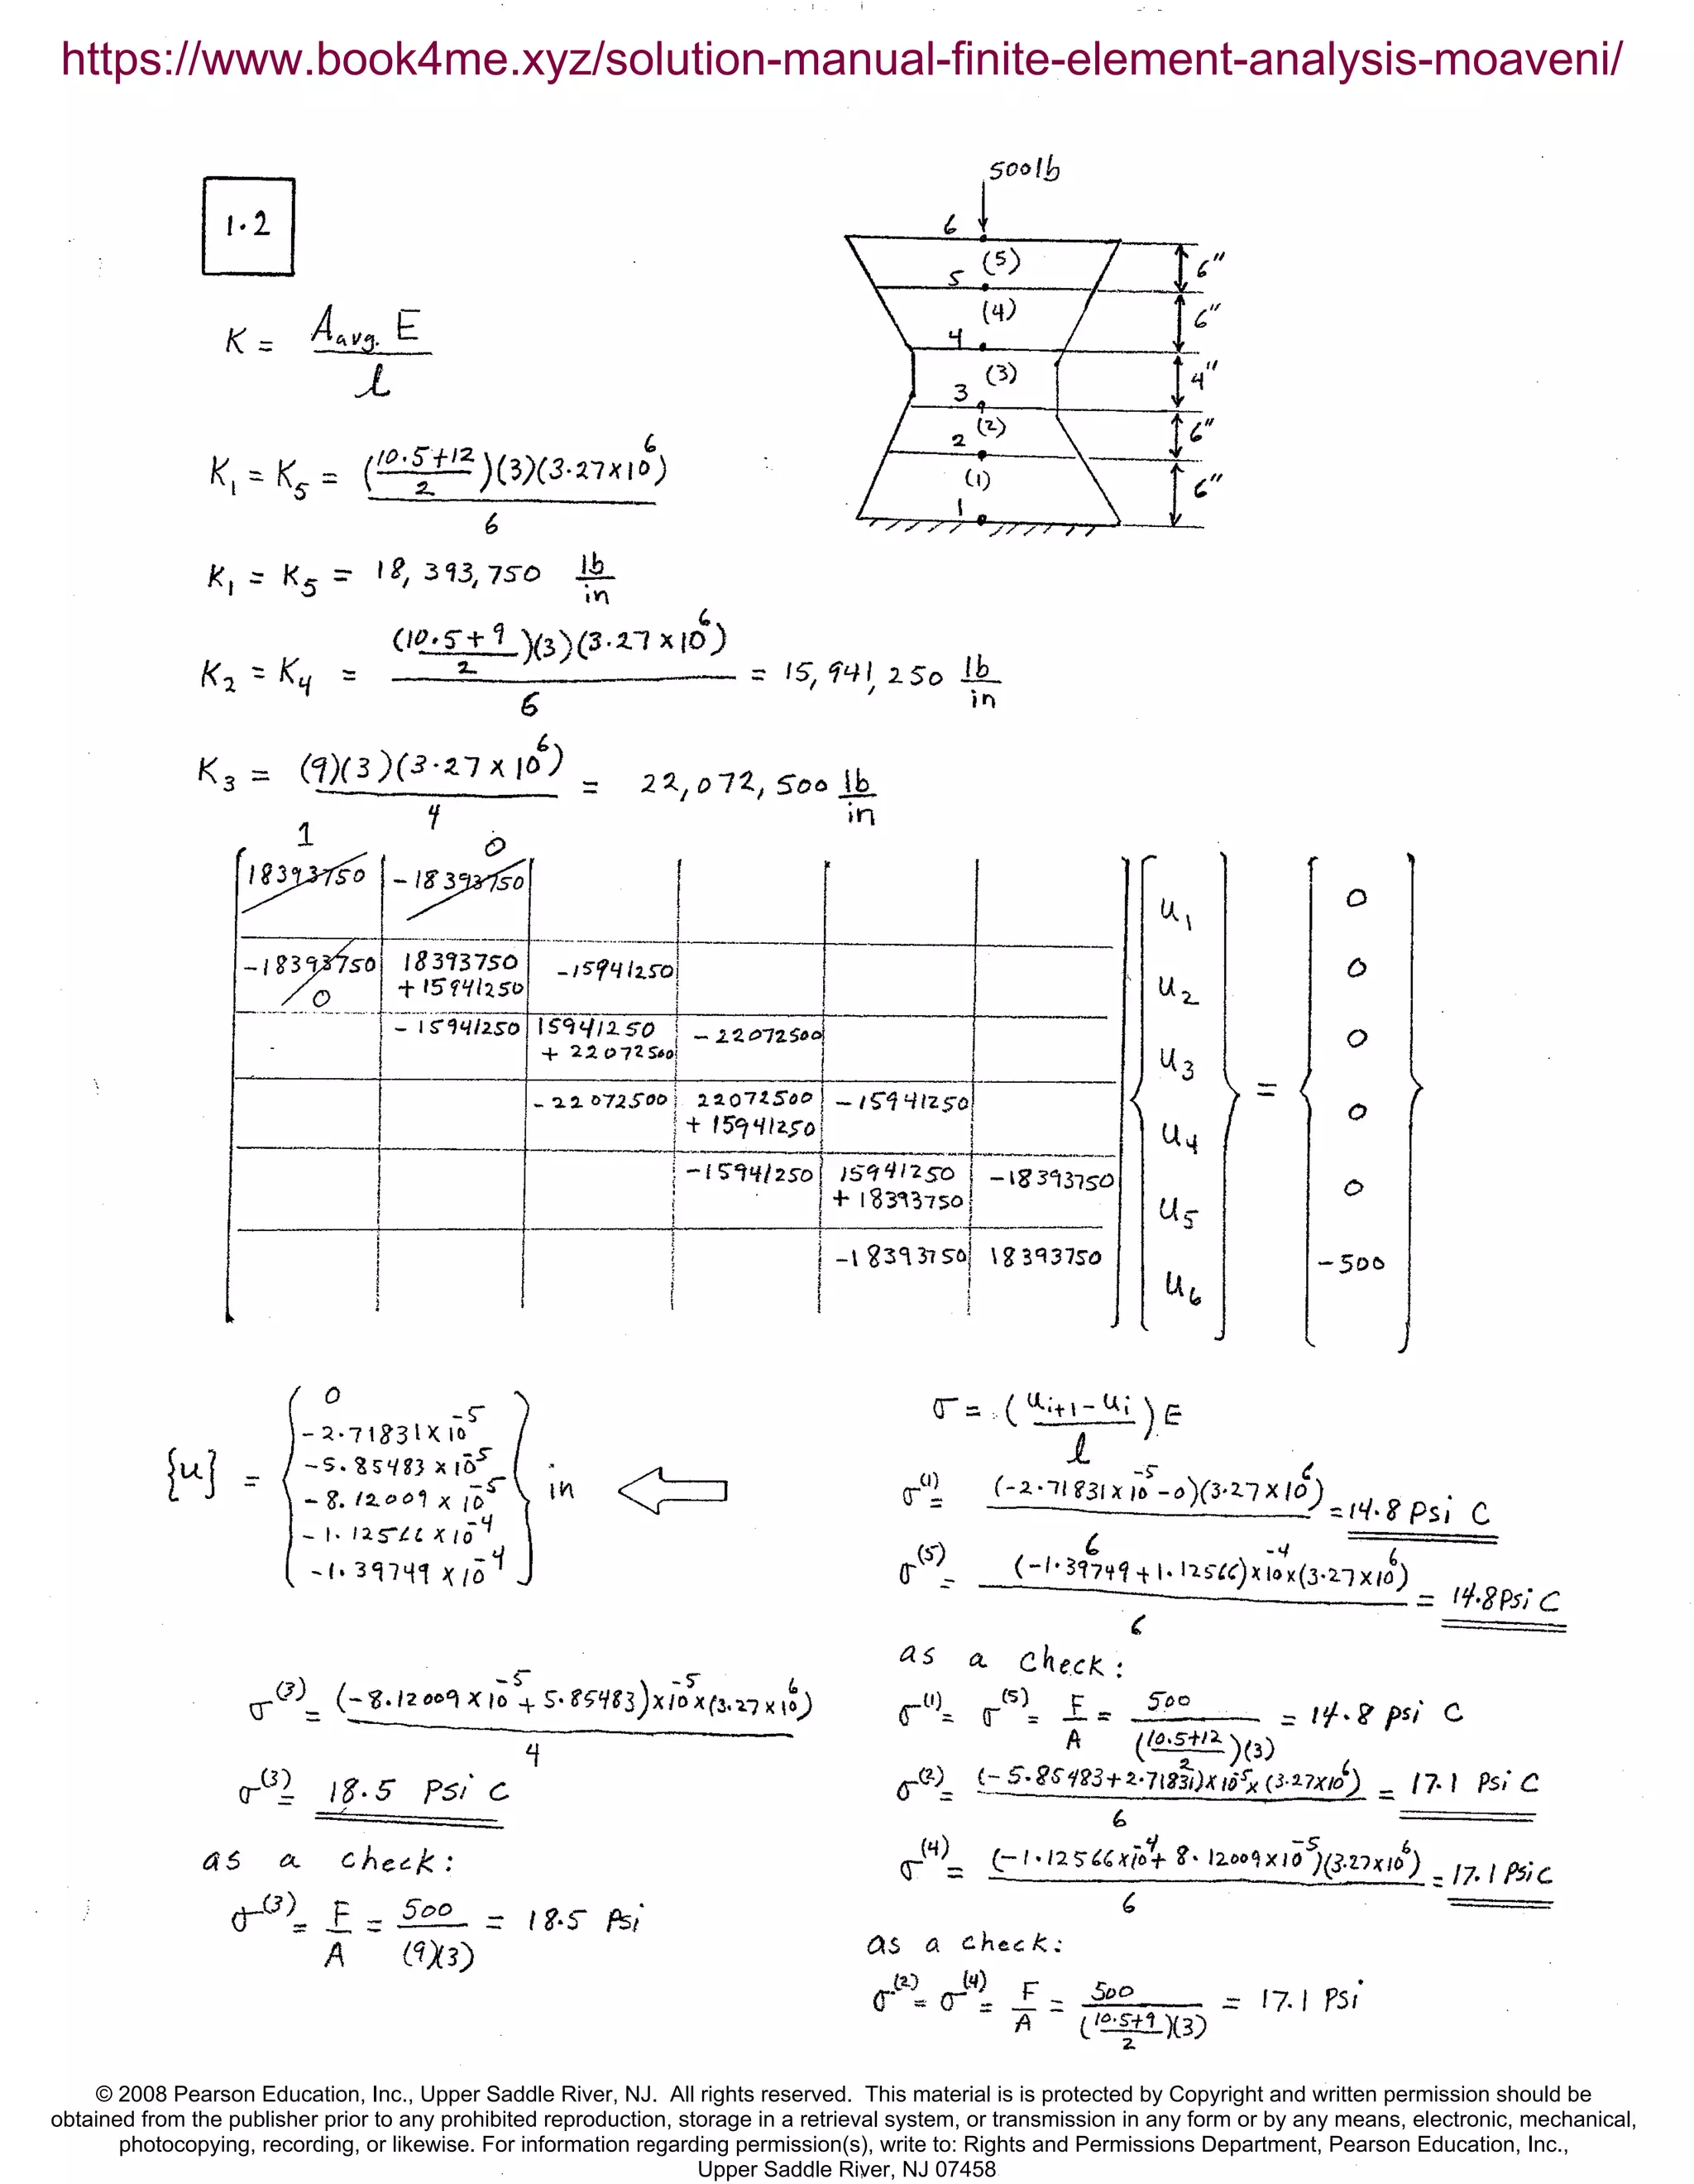 https://www.book4me.xyz/solution-manual-finite-element-analysis-moaveni/
1.2
500 lb
6
(5)
6"
5
(4)
6"
4
(3)
4"
3
(2)
6"
2
(1)
6"
1
K = A avg. E / l
K1 = K5 = ((10.5+12)/2)(3)(3.27×10^6) / 6
K1 = K5 = 18,393,750 lb/in
K2 = K4 = ((10.5+9)/2)(3)(3.27×10^6) / 6 = 15,941,250 lb/in
K3 = (9)(3)(3.27×10^6) / 4 = 22,072,500 lb/in
1 0
18393750 -18393750 u1 0
-18393750 18393750 -15941250 u2 0
0 +15941250
-15941250 15941250 -22072500 u3 0
+22072500
=
-22072500 22072500 -15941250 u4 0
+15941250
-15941250 15941250 -18393750 u5 0
+18393750
-18393750 18393750 u6 -500
{u} =
0
-2.71831×10^-5
-5.85483×10^-5
-8.12009×10^-5
-1.12566×10^-4
-1.39749×10^-4
in
σ = ((u i+1 - u i) / l) E
σ^(1) = (-2.71831×10^-5 - 0)(3.27×10^6) / 6 = 14.8 psi C
σ^(5) = (-1.39749+1.12566)×10^-4×(3.27×10^6) / 6 = 14.8 psi C
as a check:
σ^(1) = σ^(5) = F/A = 500 / ((10.5+12)/2)(3) = 14.8 psi C
σ^(2) = (-5.85483+2.71831)×10^-5×(3.27×10^6) / 6 = 17.1 psi C
σ^(4) = (-1.12566×10^-4 + 8.12009×10^-5)(3.27×10^6) / 6 = 17.1 psi C
as a check:
σ^(2) = σ^(4) = F/A = 500 / ((10.5+9)/2)(3) = 17.1 psi
σ^(3) = (-8.12009×10^-5 + 5.85483)×10^-5×(3.27×10^6) / 4
σ^(3) = 18.5 psi C
as a check:
σ^(3) = F/A = 500 / (9)(3) = 18.5 psi
© 2008 Pearson Education, Inc., Upper Saddle River, NJ. All rights reserved. This material is is protected by Copyright and written permission should be
obtained from the publisher prior to any prohibited reproduction, storage in a retrieval system, or transmission in any form or by any means, electronic, mechanical,
photocopying, recording, or likewise. For information regarding permission(s), write to: Rights and Permissions Department, Pearson Education, Inc.,
Upper Saddle River, NJ 07458